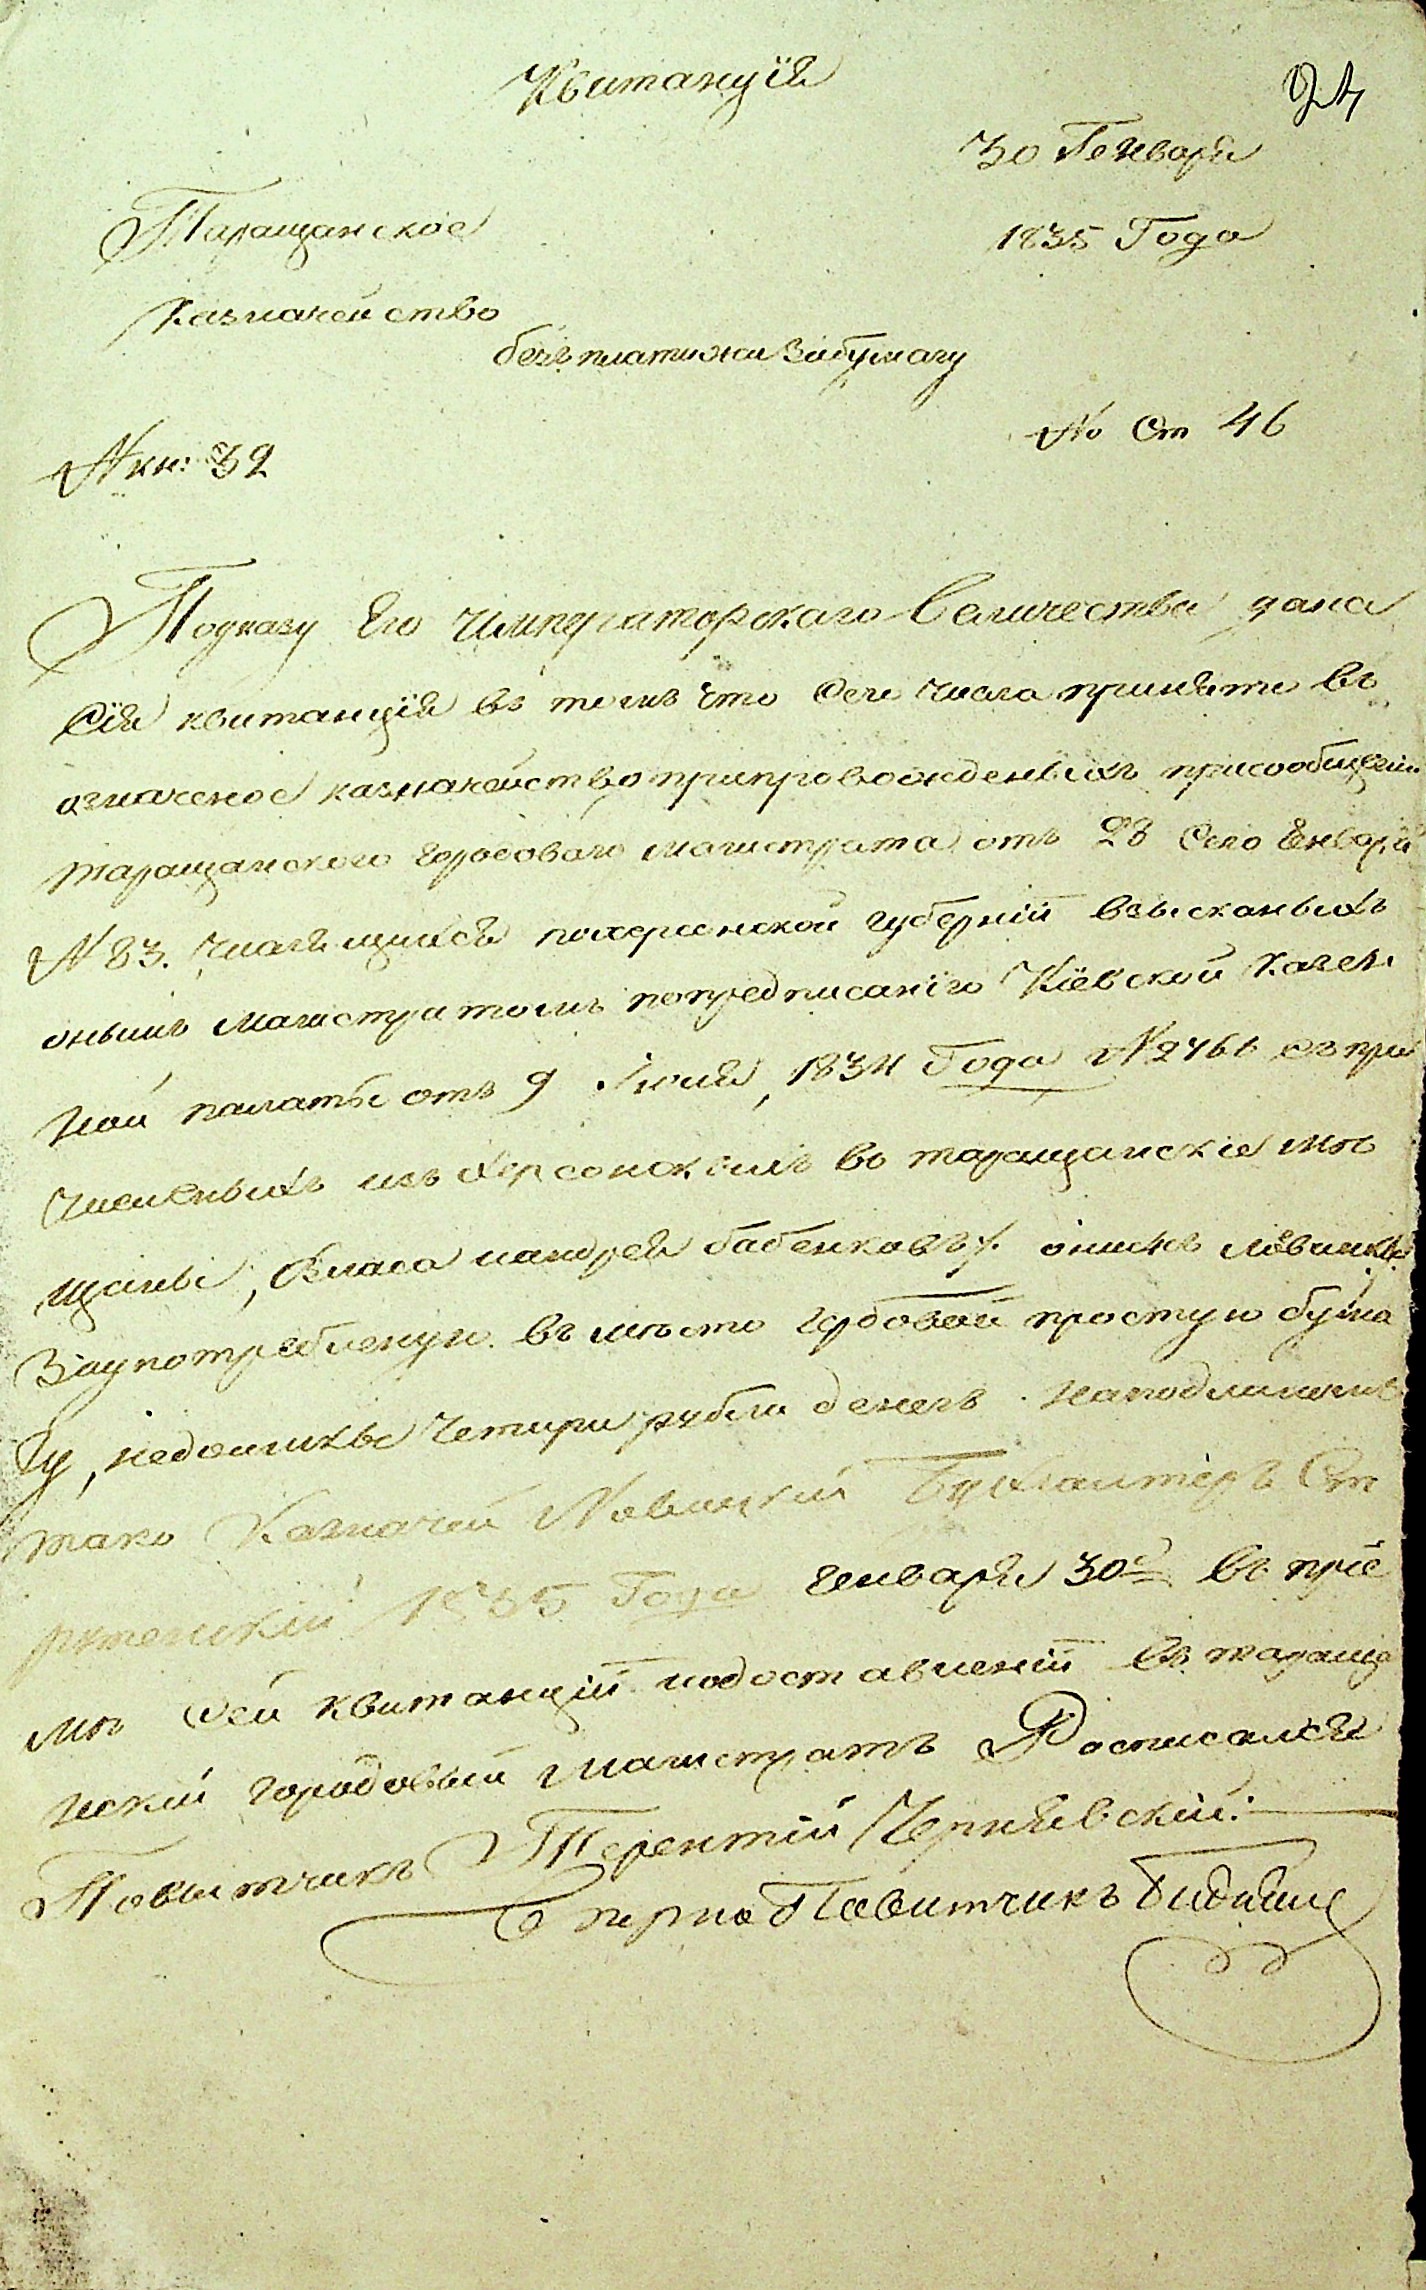 Квитанція
24
30 Генваря
Таращанское
1835 Года
Казначейство
безъ платижа за бумагу
No Ст 46
N кн: 32
По указу Его Императорскаго Величества дана
Сія квитанція въ томъ что сего числа приняти въ
означеное казначейство припровожденыхъ при сообщеніи
таращанского городоваго магистрата отъ 28 Сего Енваря
N 83. числящихся по херсонской губерній взысканыхъ
онымъ магистратомъ по предписанію Кіевской Казен
ной палаты отъ 9 Июля, 1834 Года N 2461 съ при
численыхъ изъ херсонскихъ въ таращанскіе мѣ
щаны, Власа и андрея бабенковъ
за употребленую въ мѣсто гербовой простую бума
гу, недоимкы четири рубли денегъ. На подлиномъ
тако Казначей Новицкій Бухгалтеръ
1835 Года генваря 30 въ пріе
мѣ сей квитанцій и о доставленій въ тараща
нскій городовый магистратъ Росписался
Повитчикъ Терентій Чернявскій:
Повитчикъ